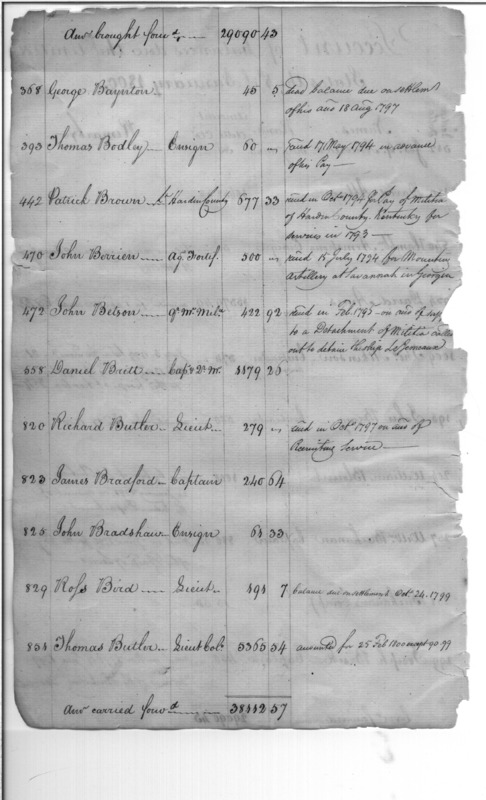 Amt. brought forwd. 29090 43
368 George Baynton 45 5 dead balance due on settlemt
of his acct 18 Aug 1797
393 Thomas Bodley Ensign 60 " recd 17 May 1794 in advance
of his Pay
442 Patrick Brown Lt. Hardin County 677 33 recd in Octr 1794 for Pay of Militia
of Hardin County Kentucky for
services in 1793
470 John Berrien Agt. Fortif. 500 " recd July 1794 for Mounting
Artillery at Savannah in Georgia
472 John Belson Qr. Mr. Mila. 422 92 recd in Feby 1795 on
to a Detachment of Militia called
out to detain the ship
558 Daniel Britt Capt & Qr. Mr. 1179 20
820 Richard Butler Lieut 279 " recd in Octr 1797 on acct of
Recruiting Service
823 James Bradford Captain 240 64
825 John Bradshaw Ensign 61 33
829 Ross Bird Lieut 491 7 balance due on settlement Octr. 24. 1799
831 Thomas Butler Lieut Col. 5365 54 accounted for 25 Feb 1800 except 90 99
Amt. carried forwd. 38412 57